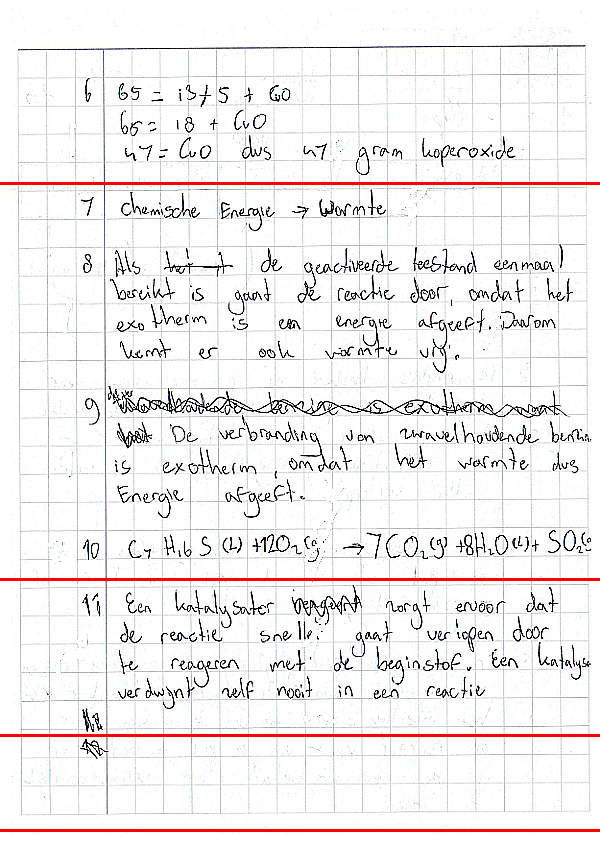 6 65 = 13+5 + CuO
65 = 18 + CuO
47 = CuO dus 47 gram koperoxide
7 Chemische Energie → Warmte
8 Als de geactiveerde toestand eenmaal
bereikt is gaat de reactie door, omdat het
exotherm is en energie afgeeft. Daarom
komt er ook warmte vrij.
9
De verbranding van zwavelhoudende benzin
is exotherm, omdat het warmte dus
Energie afgeeft.
10 C7 H16 S (l) + 12O2 (g) → 7CO2 (g) + 8H2O (l) + SO2 (g
11 Een katalysator zorgt ervoor dat
de reactie sneller gaat verlopen door
te reageren met de beginstof. Een katalysa
verdwijnt zelf nooit in een reactie
12